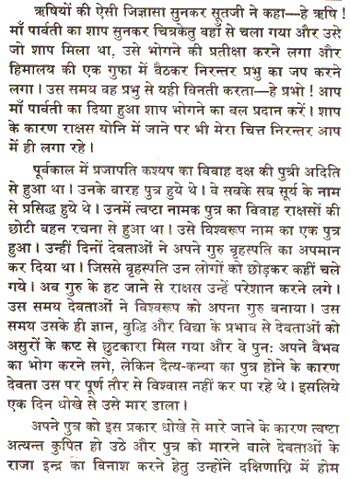 ऋषियों की ऐसी जिज्ञासा सुनकर सूतजी ने कहा—हे ऋषि !
माँ पार्वती का शाप सुनकर चित्रकेतु वहाँ से चला गया और उसे
जो शाप मिला था, उसे भोगने की प्रतीक्षा करने लगा और
हिमालय की एक गुफा में बैठकर निरन्तर प्रभु का जप करने
लगा। उस समय वह प्रभु से यही विनती करता—हे प्रभो ! आप
माँ पार्वती का दिया हुआ शाप भोगने का बल प्रदान करें। शाप
के कारण राक्षस योनि में जाने पर भी मेरा चित्त निरन्तर आप
में ही लगा रहे।
पूर्वकाल में प्रजापति कश्यप का विवाह दक्ष की पुत्री अदिति
से हुआ था। उनके वारह पुत्र हुये थे। वे सबके सब सूर्य के नाम
से प्रसिद्ध हुये थे। उनमें त्वष्टा नामक पुत्र का विवाह राक्षसों की
छोटी बहन रचना से हुआ था। उसे विश्वरूप नाम का एक पुत्र
हुआ। उन्हीं दिनों देवताओं ने अपने गुरु वृहस्पति का अपमान
कर दिया था। जिससे वृहस्पति उन लोगों को छोड़कर कहीं चले
गये। अब गुरु के हट जाने से राक्षस उन्हें परेशान करने लगे।
उस समय देवताओं ने विश्वरूप को अपना गुरु बनाया। उस
समय उसके ही ज्ञान, वुद्धि और विद्या के प्रभाव से देवताओं को
असुरों के कष्ट से छुटकारा मिल गया और वे पुनः अपने वैभव
का भोग करने लगे, लेकिन दैत्य-कन्या का पुत्र होने के कारण
देवता उस पर पूर्ण तौर से विश्वास नहीं कर पा रहे थे। इसलिये
एक दिन धोखे से उसे मार डाला।
अपने पुत्र को इस प्रकार धोखे से मारे जाने के कारण त्वष्टा
अत्यन्त कुपित हो उठे और पुत्र को मारने वाले देवताओं के
राजा इन्द्र का विनाश करने हेतु उन्होंने दक्षिणाग्नि में होम